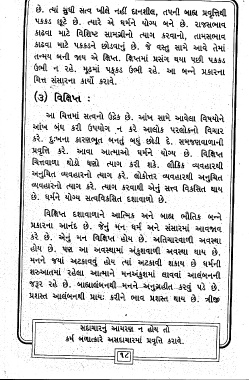 છે. ત્યાં સુધી સત્વ ખીલે નહીં દાનશીલ, તપની બાહ્ય પ્રવૃત્તિથી
પકકડ છૂટે છે. ત્યારે એ ધર્મને યોગ્ય બને છે. રાજસભાવ
કાઢવા માટે વિશિષ્ટ સામગ્રીનો ત્યાગ કરવાનો, તામસભાવ
કાઢવા માટે પકકડને છોડવાનું છે. જે વસ્તુ સામે આવે તેમાં
તન્મય બની જાય એ ક્ષિપ્ત. ક્ષિપ્તમાં પ્રસંગ થયા પછી પકકડ
ઉભી ન રહે. મૂઢમાં પકકડ ઉભી રહે. આ બન્ને પ્રકારના
ચિત્ત સંસારના કાર્યો કરાવે.
(૩) વિક્ષિપ્ત :
આ ચિત્તમાં સત્વનો ઉદ્રેક છે. આંખ સામે આવેલા વિષયોને
આંખ બંધ કરી ઉપયોગ ન કરે આલોક પરલોકનો વિચાર
કરે. દુઃખના કારણભૂત બનતું બધું છોડી દે. સમજણવાળાની
પ્રવૃત્તિ કરે. આવા આત્માઓ ધર્મને યોગ્ય છે. વિક્ષિપ્ત
ચિત્તવાળા થોડો ઘણો ત્યાગ કરી શકે. લૌકિક વ્યવહારથી
અનુચિત વ્યવહારનો ત્યાગ કરે. લોકોત્તર વ્યવહારથી અનુચિત
વ્યવહારનો ત્યાગ કરે. ત્યાગ કરવાથી એનું સત્વ વિકસિત થાય
છે. ધર્મને યોગ્ય સત્વવિકસિત દશાવાળો છે.
વિક્ષિપ્ત દશાવાળાને આત્મિક અને બાહ્ય ભૌતિક બન્ને
પ્રકારના આનંદ છે. જેનું મન ધર્મ અને સંસારમાં આવજાવ
કરે છે. એનું મન વિક્ષિપ્ત હોય છે. અતિચારવાળી અવસ્થા
હોય છે. પણ આ અવસ્થામાં અંકુશવાળી અવસ્થા થાય છે.
મનને જ્યાં અટકાવવું હોય ત્યાં અટકાવી શકાય છે ધર્મની
શરુઆતમાં રહેલા આત્માને મનઅંકુશમાં લાવવાં આલંબનની
જરૂર રહે છે. બાહ્યાલંબનથી મનને અનુગ્રહીત કરવું પડે છે.
પ્રશસ્ત આલંબનથી પ્રાયઃ કરીને ભાવ પ્રશસ્ત થાય છે. ત્રીજી
સદાચારનું આચરણ ન હોય તો
કર્મ બળાત્કારે અસદાચારમાં પ્રવૃત્તિ કરાવે.
૧૮